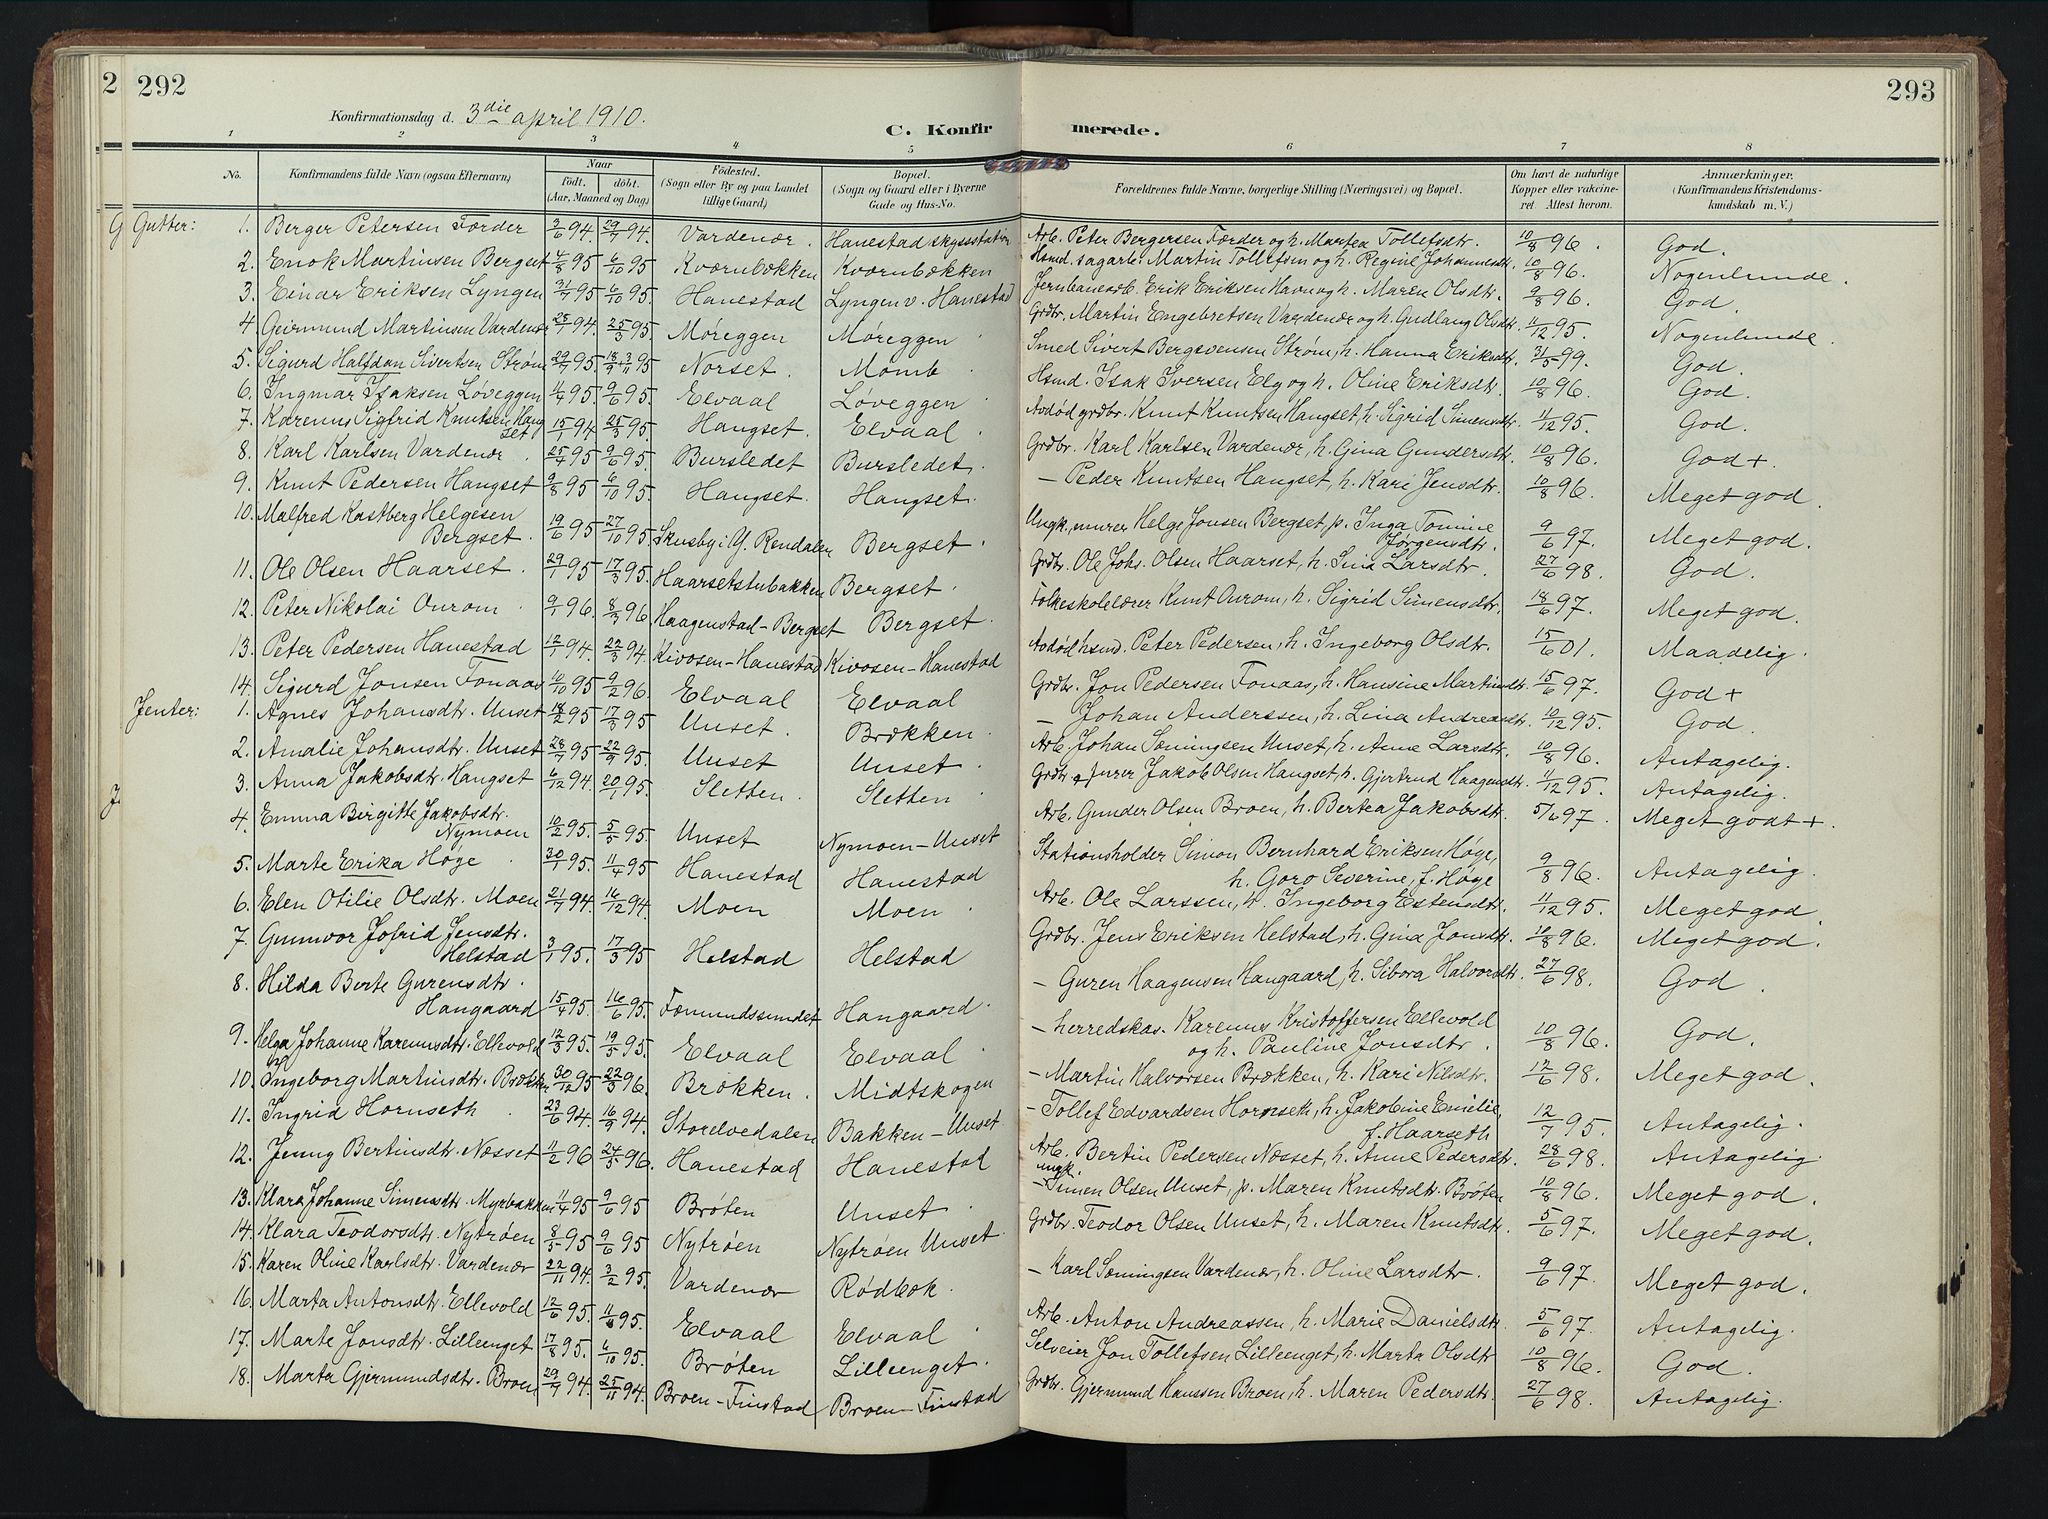 2 292
293
Konfirmationsdag d. 3die april 1910.
C. Konfirmerede.
1 2 3 4 5 6 7 8
No. Konfirmandens fulde Navn (ogsaa Efternavn) Naar født. døbt. (Aar, Maaned og Dag) Fødested. (Sogn eller By og paa Landet tillige Gaard) Bopæl. (Sogn og Gaard eller i Byerne Gade og Hus-No. Forældrenes fulde Navne, borgerlige Stilling (Næringsvei) og Bopæl. Om havt de naturlige Kopper eller vakcineret. Attest herom. Anmærkninger. (Konfirmandens Kristendomskundskab m. V.)
G Gutter: 1. Berger Petersen Førder 3/6 94. 29/7 94. Vardenær. Hanestad skysstation Arb. Peter Bergersen Førder og h. Martea Tollefsdtr. 10/8 96. God.
2. Enok Martinsen Berget 4/8 95 6/10 95 Kværnbækken Kværnbækken Hsmd. sagarb. Martin Tollefsen og h. Regine Johannesdtr. 10/8 96. Nogenlunde.
3. Einar Eriksen Lyngen 31/7 95 6/10 95. Hanestad Lyngen v. Hanestad Jernbanearb. Erik Eriksen Havn og h. Maren Olsdtr. 9/8 96. God.
4. Geirmund Martinsen Vardenær 28/ 94. 25/3 95. Møreggen Møreggen Grdbr. Martin Engebretsen Vardenær og h. Gudlaug Olsdtr. 11/12 95. Nogenlunde.
5. Sigurd Halfdan Sivertsen Strøm 29/7 95. 18/9 3/11 95 Norset. Momb. Smed Sivert Bergsvensen Strøm, h. Hanna Eriksdtr. 31/5 99. God.
6. Ingmar Isaksen Løveggen 4/4 95. 9/6 95. Elvaal Løveggen Hsmd. Isak Iversen Elg og h. Oline Eriksdtr. 10/8 96. God.
7. Karenus Sigfrid Knutsen Hangset 15/1 94 25/3 95. Hangset. Elvaal Avdød grdbr. Knut Knutsen Hangset, h. Sigrid Simensdtr. 11/12 95. God.
8. Karl Karlsen Vardenær. 25/4 95 9/6 95. Bursledet Bursledet. Grdbr. Karl Karlsen Vardenær, h. Gina Gundersdtr. 10/8 96. God +.
9. Knut Pedersen Hangset 9/8 95 6/10 95. Hangset. Hangset. – Peder Knutsen Hangset, h. Kari Jensdtr. 10/8 96. Meget god.
10. Malfred Kastberg Helgesen
Bergset. 19/6 95 27/10 95. Skusby i Y. Rendalen Bergset. Ungk. murer Helge Jonsen Bergset, p. Inga Tomine Jørgensdtr. 9/6 97. Meget god.
11. Ole Olsen Haarset. 29/1 95 17/3 95. Haarsetstubakken Bergset. Grdbr. Ole Johs. Olsen Haarset, h. Sina Larsdtr. 27/6 98. God.
12. Peter Nikolai Ourom. 9/1 96. 8/3 96 Haagenstad–Bergset Bergset. Folkeskolelærer Knut Ourom, h. Sigrid Simensdtr. 18/6 97. Meget god.
13. Peter Pedersen Hanestad 12/1 94. 22/3 94. Kivosen–Hanestad Kivosen–Hanestad Avdød hsmd. Peter Pedersen, h. Ingeborg Olsdtr. 15/6 01. Maadelig.
14. Sigurd Jonsen Fonaas 10/10 95 9/2 96. Elvaal Elvaal Grdbr. Jon Pedersen Fonaas, h. Hansine Martinsdtr. 15/6 97. God +
Jenter: 1. Agnes Johansdtr. Unset 18/2 95 17/3 95 Unset. Brækken. – Johan Anderssen, h. Lina Andreasdtr. 10/12 95. God
2. Amalie Johansdtr. Unset 28/7 95 22/9 95. Unset Unset. Arb. Johan Sømingsen Unset, h. Anne Larsdtr. 10/8 96. Antagelig.
3. Anna Jakobsdtr. Hangset 6/12 94. 20/1 95. Sletten. Sletten. Grdbr. Jakob Olsen Hangset, h. Gjertrud Haagensdtr. 11/12 95. Antagelig.
4. Emma Birgitte Jakobsdtr.
Nymoen 10/2 95. 5/5 95. Unset Nymoen–Unset Arb. Gunder Olsen Broen, h. Bertea Jakobsdtr. 5/6 97. Meget godt +.
5. Marte Erika Høge. 30/1 95. 11/4 95 Hanestad Hanestad Stationsholder Simon Bernhard Eriksen Høge, h. Goro Severine, f. Høge 9/8 96. Antagelig.
6. Elen Otilie Olsdtr. Moen 21/7 94. 16/12 94. Moen Moen. Arb. Ole Larssen, h. Ingeborg Estensdtr. 11/12 95. Meget god.
7. Gunnvor Jofrid Jensdtr.
Helstad 3/1 95. 17/3 95 Helstad Helstad Grdbr. Jens Eriksen Helstad, h. Gina Jonsdtr. 10/8 96. Meget god.
8. Hilda Berte Gurensdtr.
Hangaard 15/4 95. 16/6 95. Fæmundssundet Hangaard. – Guren Haagensen Hangaard, h. Sibora Halvorsdtr. 27/6 98. God
9. Helga Johanne Karenusdtr. Ellevold 12/3 95. 19/5 95. Elvaal Elvaal. – herredskas. Karenus Kristoffersen Ellevold og h. Pauline Jonsdtr. 10/8 96. God.
10. Ingeborg Martinsdtr. Brækken 30/12 95 22/3 96. Brækken. Midtskogen – Martin Halvorsen Brækken, h. Kari Nilsdtr. 12/6 98. Meget god.
11. Ingrid Hornseth. 23/6 94. 16/9 94. Storelvedalen Bakken–Unset – Tollef Edvardsen Hornseth, h. Jakobine Emilie, f. Haarseth 12/7 95. Antagelig.
12. Jenny Bertinsdtr. Næsset 11/2 96 24/5 96. Hanestad Hanestad Arb. Bertin Pedersen Næsset, h. Anne Pedersdtr. 28/6 98. Antagelig.
13. Klara Johanne Simensdtr. Myrbakken 11/4 95 9/6 95 Brøten Unset. – ungk. Simen Olsen Unset, p. Maren Knutsdtr. Brøten 10/8 96. Meget god.
14. Klara Teodorsdtr. Nytrøen 8/5 95 9/6 95 Nytrøen Nytrøen Unset. Grdbr. Teodor Olsen Unset, h. Maren Knutsdtr. 5/6 97. Meget god.
15. Karen Oline Karlsdtr. Vardenær 22/11 94. 3/2 95. Vardenær Rødbæk. – Karl Sømingsen Vardenær, h. Oline Larsdtr. 9/6 97. Meget god.
16. Marta Antonsdtr. Ellevold 12/6 95. 11/8 95. Elvaal Elvaal. Arb. Anton Andreassen, h. Marie Danielsdtr. 5/6 97. Antagelig.
17. Marte Jonsdtr. Lilleenget 17/8 95. 6/10 95. Brøten Lilleenget. Selveier Jon Tollefsen Lilleenget, h. Marta Olsdtr 10/8 96. God.
18. Marta Gjermundsdtr. Broen 29/9 94. 25/11 94. Broen–Finstad Broen–Finstad Grdbr. Gjermund Hanssen Broen, h. Maren Pedersdtr. 27/6 98. Antagelig.